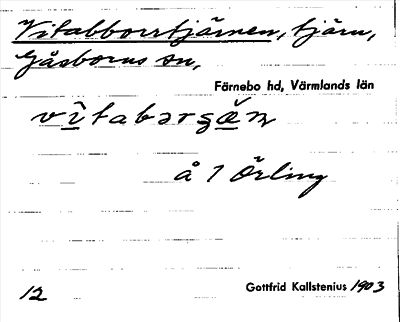 Vitabborrtjärnen, tjärn,
Gåsborns sn,
Färnebo hd, Värmlands län
å 1 Örling
12
Gottfrid Kallstenius 1903